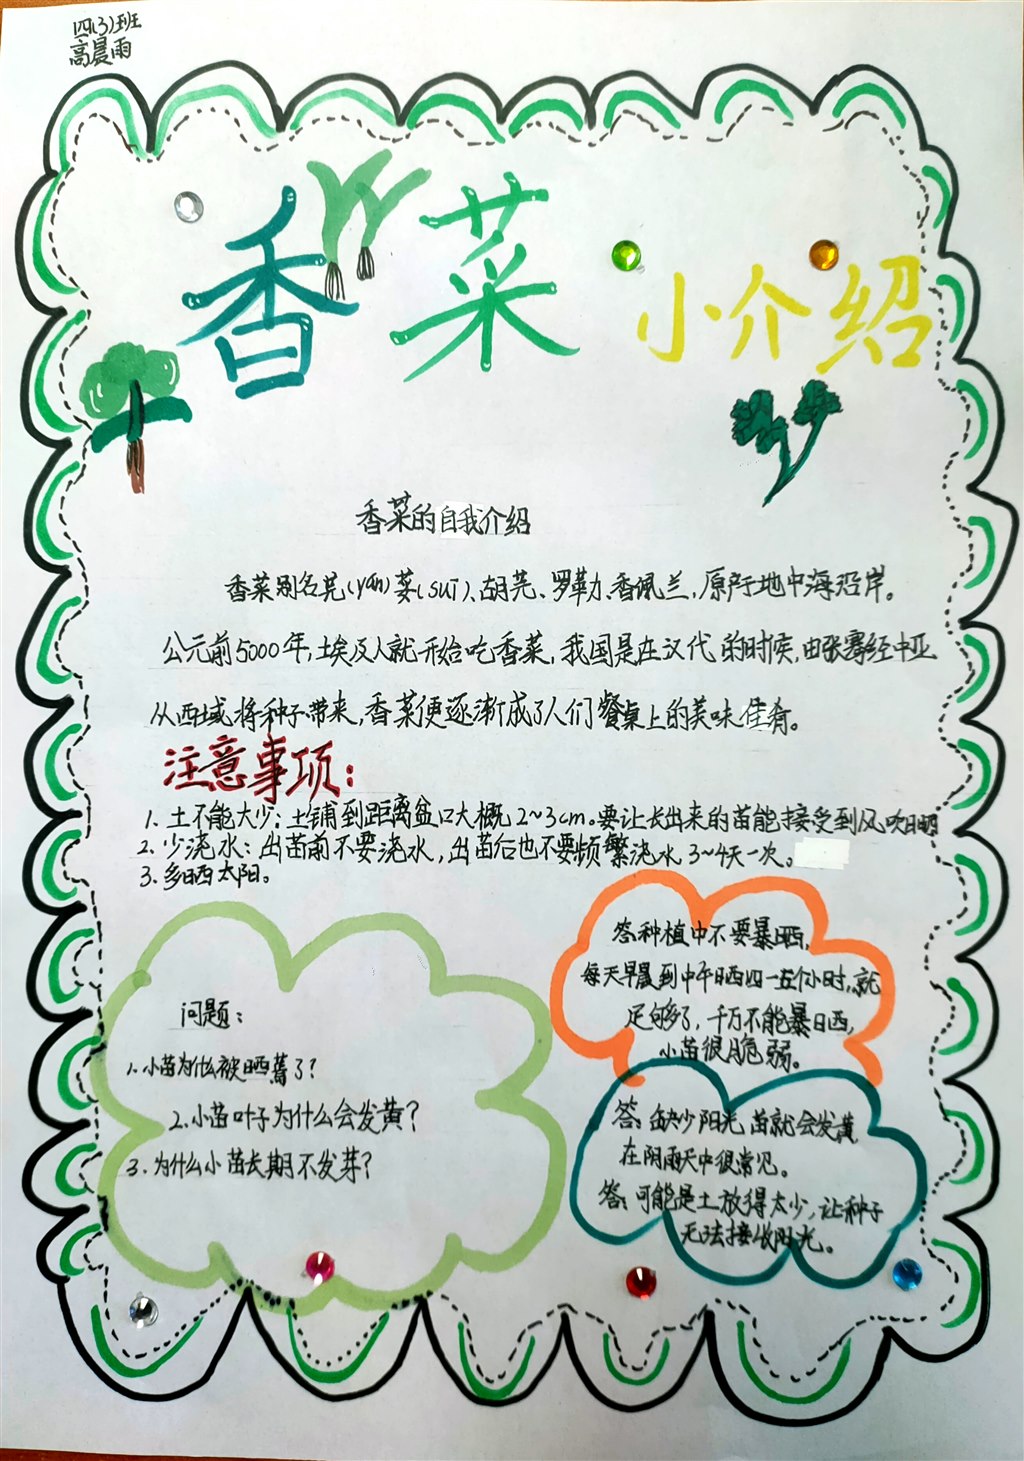 四(3)班
高晨雨
香菜小介绍
香菜的自我介绍
香菜别名芫(yán)荽(suī)、胡芫、罗勒、香佩兰,原产于地中海沿岸。
公元前5000年,埃及人就开始吃香菜,我国是在汉代的时候,由张骞经中亚
从西域将种子带来,香菜便逐渐成了人们餐桌上的美味佳肴。
注意事项:
1. 土不能太少:土铺到距离盆口大概2~3cm。要让长出来的苗能接受到风吹日晒
2. 少浇水:出苗前不要浇水,出苗后也不要频繁浇水3~4天一次。
3. 多晒太阳。
问题:
1. 小苗为什么被晒蔫了?
2. 小苗叶子为什么会发黄?
3. 为什么小苗长期不发芽?
答:种植中不要暴晒,
每天早晨到中午晒四-五个小时,就
足够了,千万不能暴晒,
小苗很脆弱。
答:缺少阳光苗就会发黄
在阴雨天中很常见。
答:可能是土放得太少,让种子
无法接收阳光。